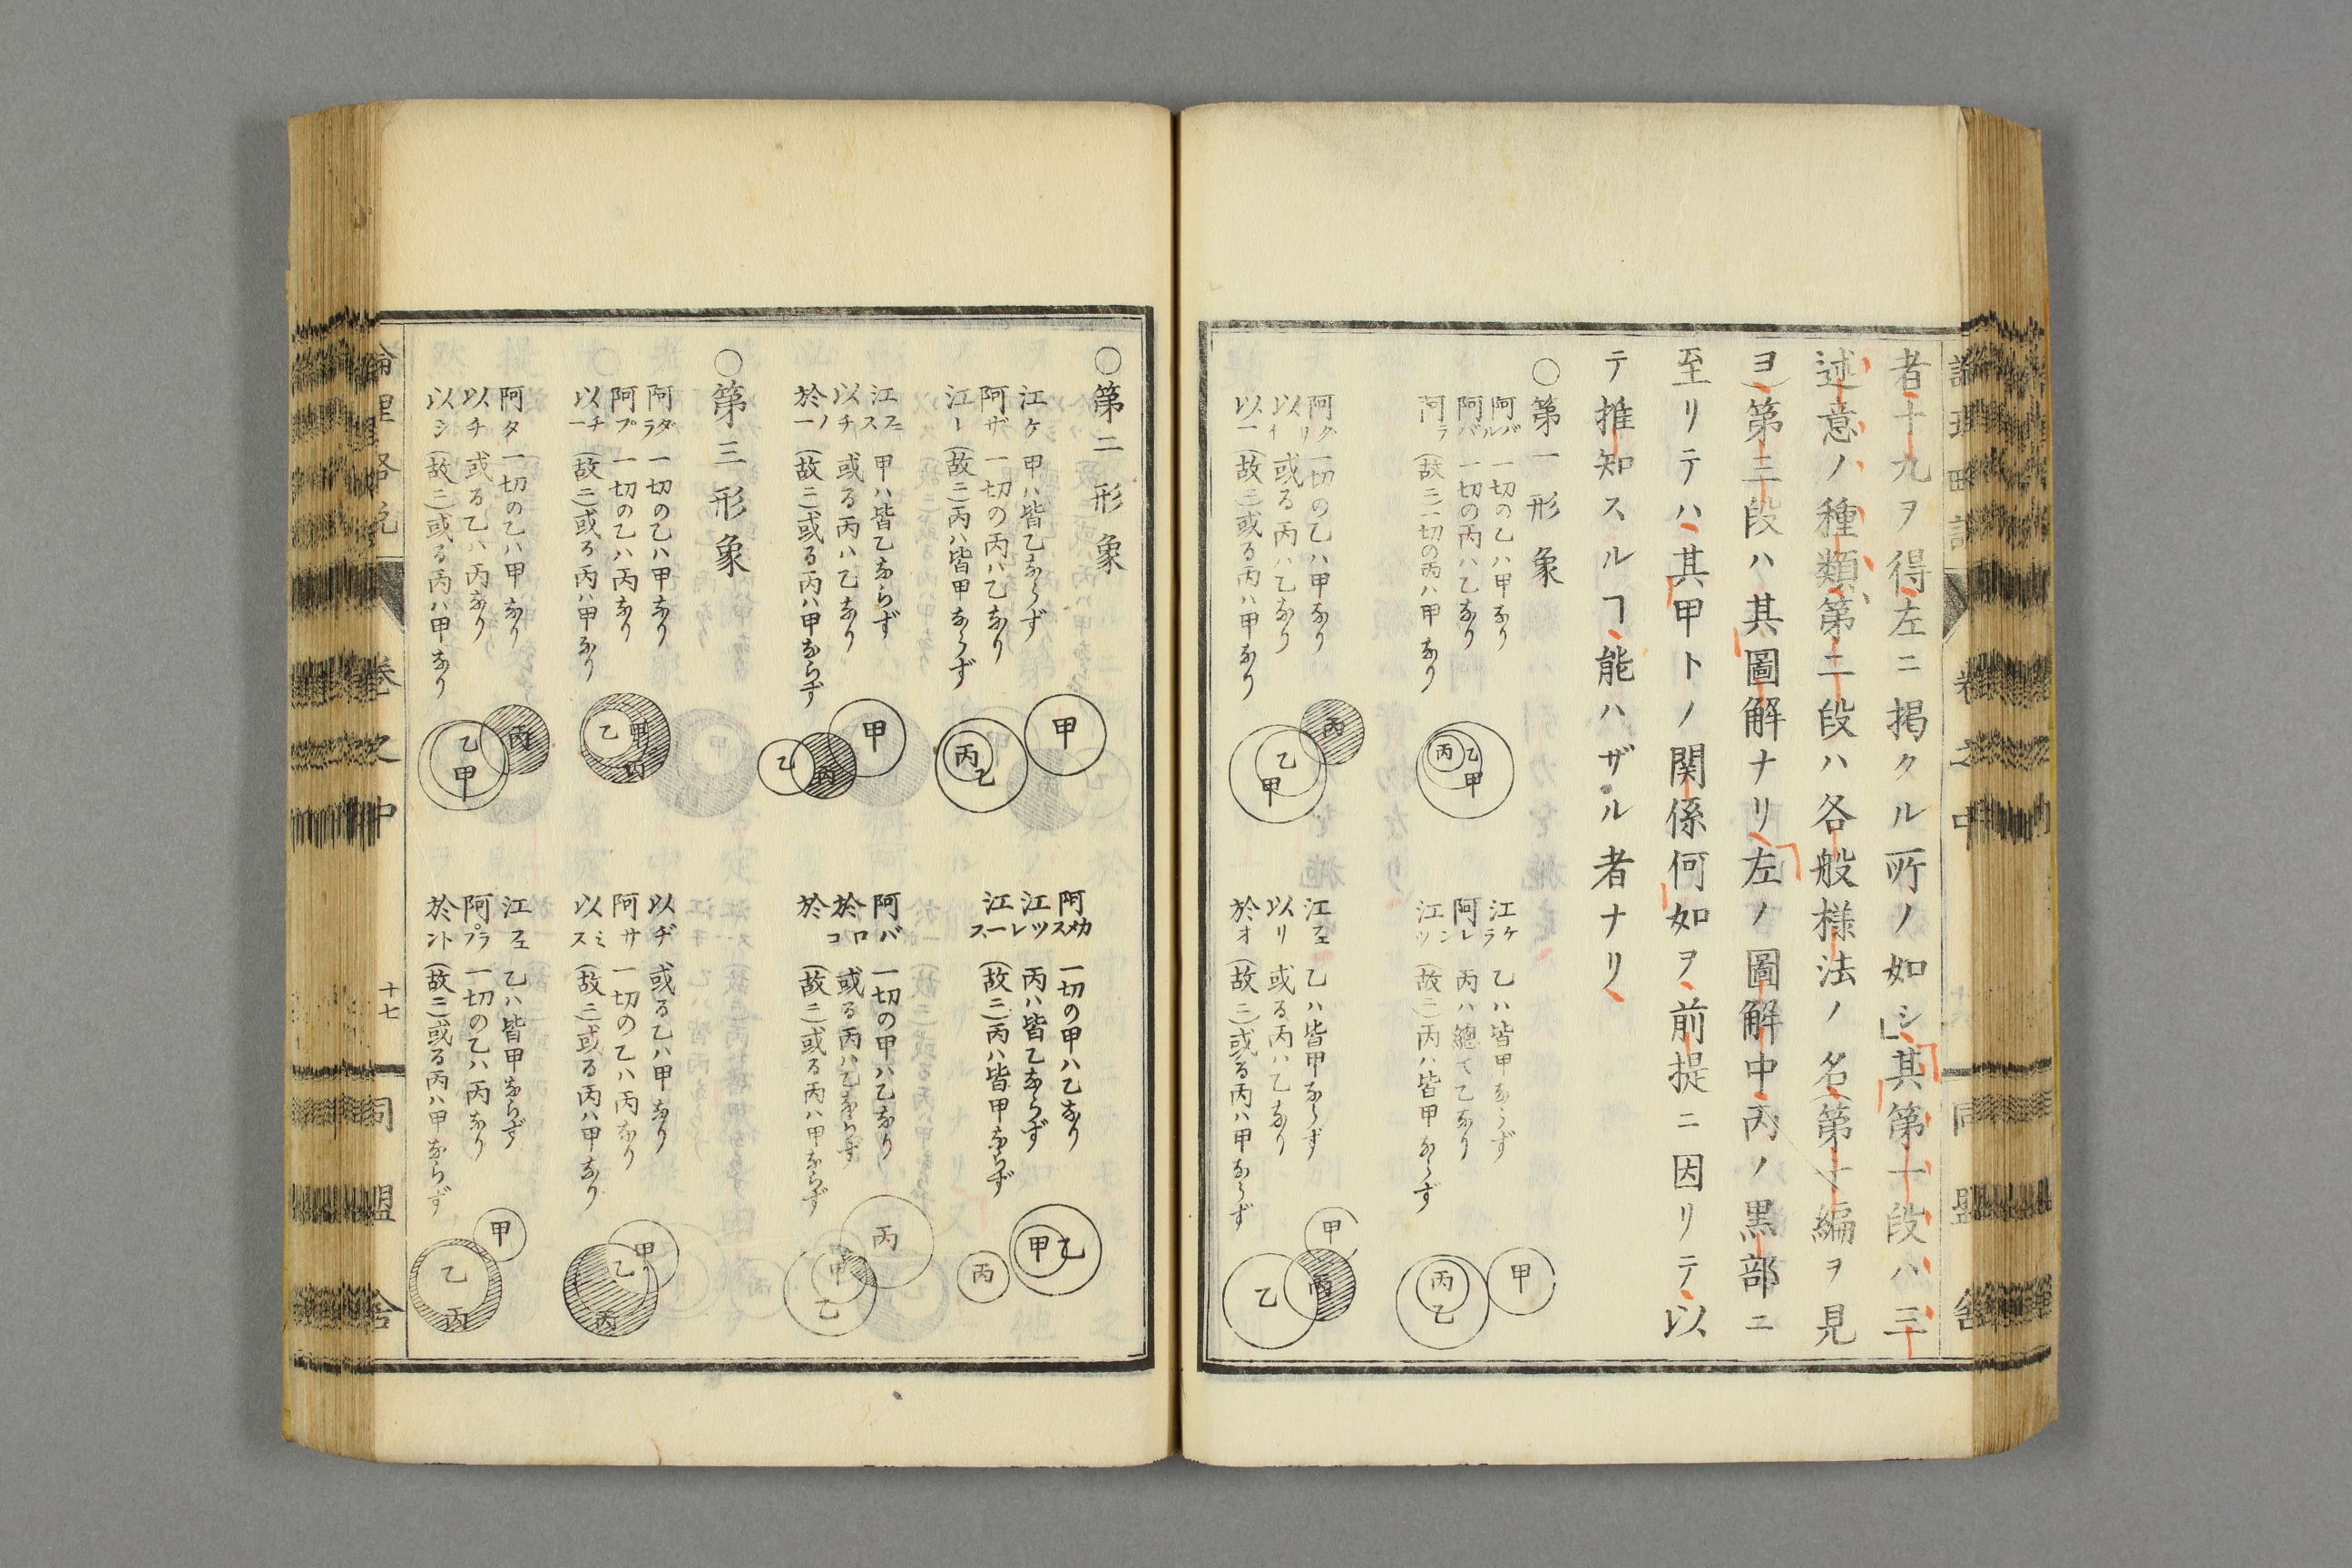 者十九ヲ得左ニ掲クル所ノ如シ其第一段ハ三
述意ノ種類第二段ハ各般様法ノ名(第十編ヲ見
ヨ)第三段ハ其圖解ナリ左ノ圖解中丙ノ黒部ニ
至リテハ其甲トノ関係何如ヲ前提ニ因リテ以
テ推知スルヿ能ハザル者ナリ
〇第一形象
阿バルバ 一切の乙ハ甲なり
阿バ 一切の丙ハ乙なり
阿ラ (故ニ)一切の丙ハ甲なり
甲
乙
丙
江ケラ 乙ハ皆甲ならず
阿レ 丙ハ總て乙なり
江ンツ (故ニ)丙ハ皆甲ならず
甲
丙
乙
阿ダリ 一切の乙ハ甲なり
以イ 或る丙ハ乙なり
以ー (故ニ)或る丙ハ甲なり
丙
乙
甲
江フェ 乙ハ皆甲ならず
以リ 或る丙ハ乙なり
於オ (故ニ)或る丙ハ甲ならず
甲
丙
乙
〇第二形象
江ケ 甲ハ皆乙ならず
阿ザ 一切の丙ハ乙なり
江ー (故ニ)丙ハ皆甲ならず
甲
丙
乙
阿カメス 一切の甲ハ乙なり
江ツレ 丙ハ皆乙ならず
江ース (故ニ)丙ハ皆甲ならず
乙
甲
丙
江フェス 甲ハ皆乙ならず
以チ 或る丙ハ乙なり
於ノー (故ニ)或る丙ハ甲ならず
甲
丙
乙
阿バ 一切の甲ハ乙なり
於ロ 或る丙ハ乙ならず
於コ (故ニ)或る丙ハ甲ならず
丙
甲
乙
〇第三形象
阿ダラ 一切の乙ハ甲なり
阿プ 一切の乙ハ丙なり
以チー (故ニ)或る丙ハ甲なり
甲
乙
丙
以ヂ 或る乙ハ甲なり
阿サ 一切の乙ハ丙なり
以ミス (故ニ)或る丙ハ甲なり
甲
乙
丙
阿タ 一切の乙ハ甲なり
以チ 或る乙ハ丙なり
以シ (故ニ)或る丙ハ甲なり
丙
乙
甲
江フェ 乙ハ皆甲ならず
阿プラ 一切の乙ハ丙なり
於ント (故ニ)或る丙ハ甲ならず
甲
乙
丙
卷之中
十七
同盟舎